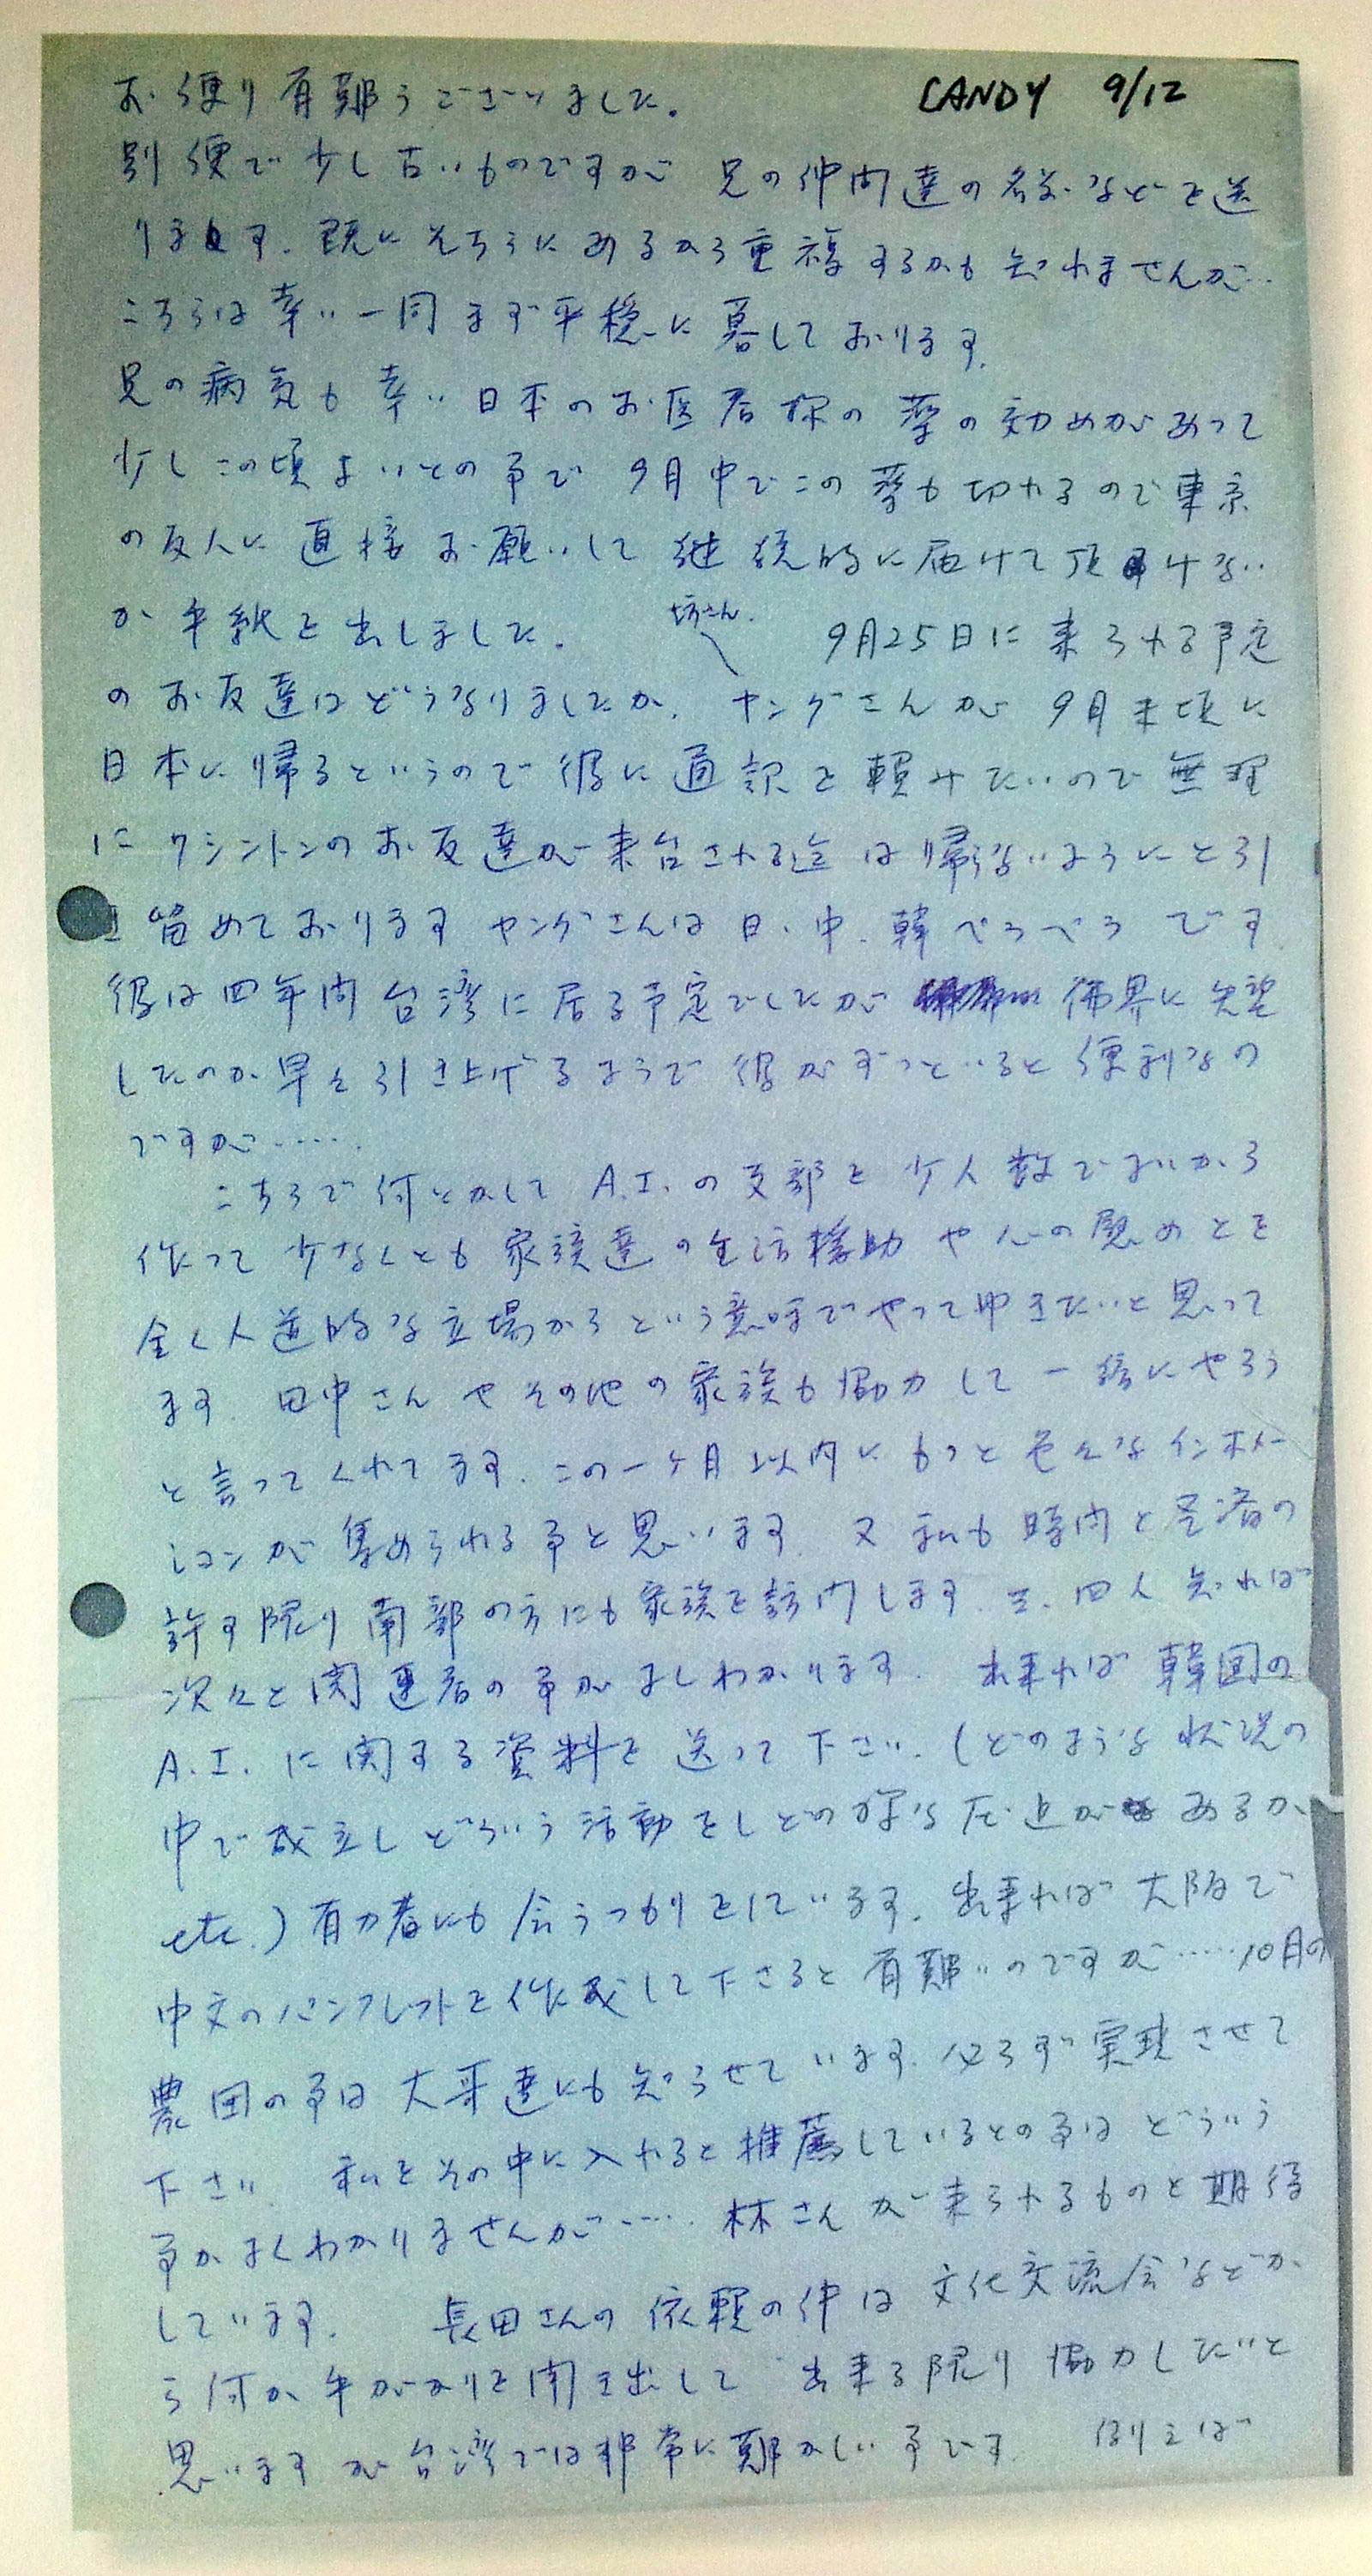 お便り有難うございました。 CANDY 9/12
別便で少し古いものですが 兄の仲間達の名前などを送
ります。既にそちらにあるから重複するかも知れませんが…
こちらは幸い一同まず平穏に暮しております。
兄の病気も幸い日本のお医者様の薬の効めがあって
少しこの頃よいとの事で 9月中でこの薬も切れるので東京
の友人に直接お願いして継続的に届けて頂けない
か手紙を出しました。 9月25日に来られる予定
坊さん.
のお友達はどうなりましたか。ヤングさんが9月末頃に
日本に帰るというので彼に通訳を頼みたいので無理
にワシントンのお友達が来台される迄は帰らないようにと引
き留めております ヤングさんは日、中、韓ぺらぺらです
彼は四年間台湾に居る予定でしたが 佛界に失望
したのか早々引き上げるようで彼がずっといると便利なの
ですが……
こちらで何とかして A.I. の支部を少人数でよいから
作って少なくとも家族達の生活援助や心の慰めとを
全く人道的な立場からという意味でやって ゆきたいと思って
ます。田中さんやその他の家族も協力して一緒にやろう
と言ってくれてます。この一ケ月以内にもっと色々なインホメー
ションが集められる事と思います。又私も時間と経済の
許す限り南部の方にも家族を訪問します。三、四人知れば
次々と関連者の事がよくわかります。 出来れば韓国の
A.I. に関する資料を送って下さい。(どのような状況の
中で成立しどういう活動をしどの様な圧迫があるか
etc.) 有力者にも会うつもりをしています。出来れば大阪で
中文のパンフレットを作成して下さると有難いのですが……10月の
農団の事は大哥達にも知らせています。必らず実現させて
下さい。 私をその中に入れると推薦しているとの事はどういう
事かよくわかりませんが……林さんが来られるものと期待
しています。 長田さんの依頼の件は文化交流会などか
ら何か手がかりを聞き出して出来る限り協力したいと
思いますが台湾では非常に難かしい事です